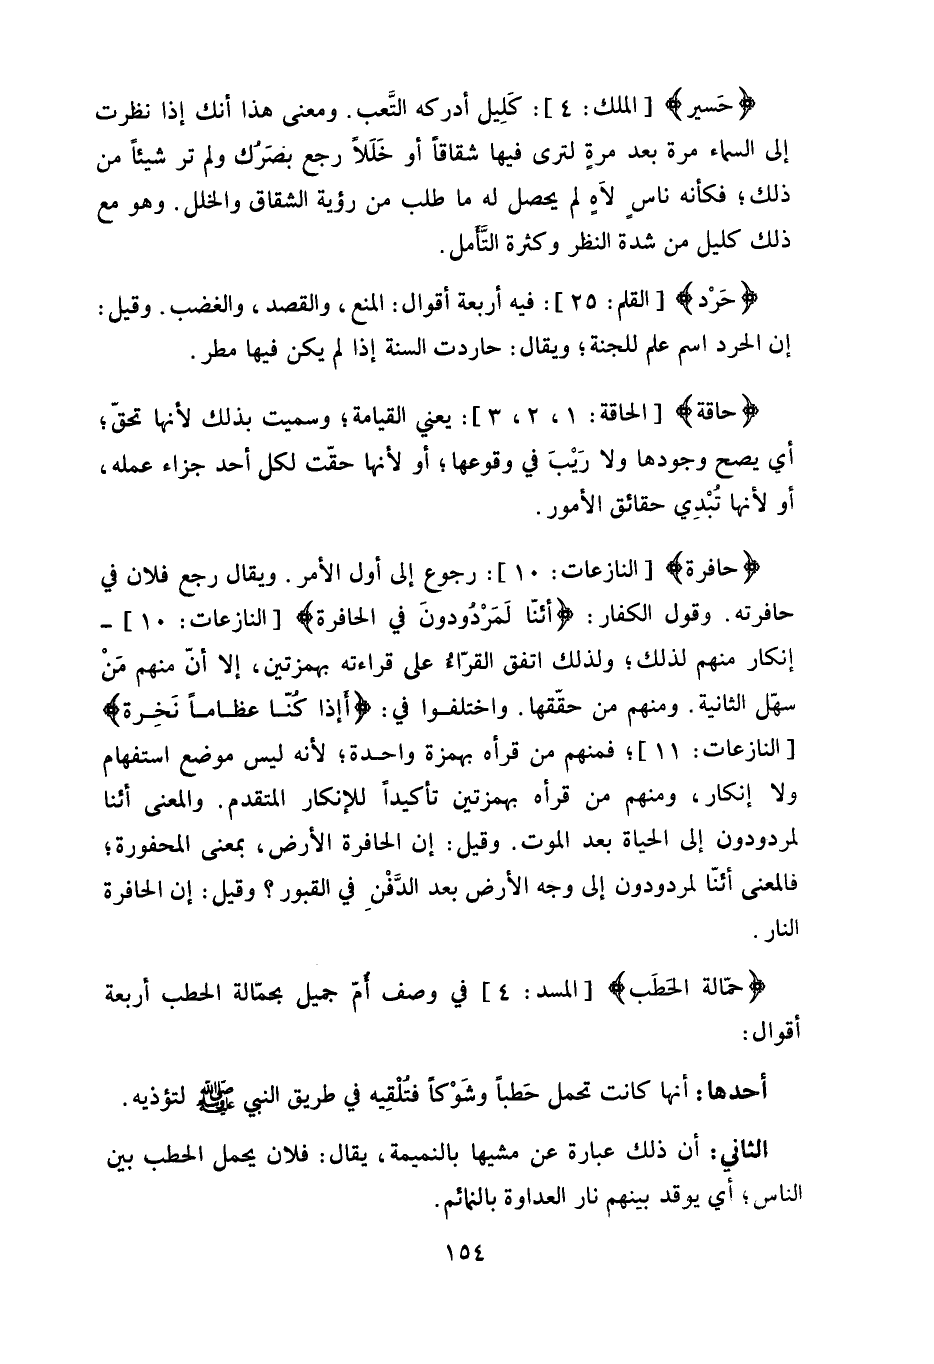 ﴿حَسير﴾ [الملك: ٤]: كَلِيل أدركه التَّعب. ومعنى هذا أنك إذا نظرت
إلى السماء مرة بعد مرةٍ لترى فيها شقاقاً أو خَلَلاً رجع بصَرُك ولم تر شيئاً من
ذلك؛ فكأنه ناسٍ لاَهٍ لم يحصل له ما طلب من رؤية الشقاق والخلل. وهو مع
ذلك كليل من شدة النظر وكثرة التَّأمل.
﴿حَرْد﴾ [القلم: ٢٥]: فيه أربعة أقوال: المنع، والقصد، والغضب. وقيل:
إن الحرد اسم علم للجنة؛ ويقال: حاردت السنة إذا لم يكن فيها مطر.
﴿حاقة﴾ [الحاقة: ١، ٢، ٣]: يعني القيامة؛ وسميت بذلك لأنها تحقّ؛
أي يصح وجودها ولا رَيْبَ في وقوعها؛ أو لأنها حقّت لكل أحد جزاء عمله،
أو لأنها تُبْدِي حقائق الأمور.
﴿حافرة﴾ [النازعات: ١٠]: رجوع إلى أول الأمر. ويقال رجع فلان في
حافرته. وقول الكفار: ﴿أئنّا لَمَرْدُودونَ في الحافرة﴾ [النازعات: ١٠] -
إنكار منهم لذلك؛ ولذلك اتفق القرّاءُ على قراءته بهمزتين، إلا أنّ منهم مَنْ
سهّل الثانية. ومنهم من حقّقها. واختلفوا في: ﴿أَإذا كُنّا عظاماً نَخِرة﴾
[النازعات: ١١]؛ فمنهم من قرأه بهمزة واحدة؛ لأنه ليس موضع استفهام
ولا إنكار، ومنهم من قرأه بهمزتين تأكيداً للإنكار المتقدم. والمعنى أئنا
لمردودون إلى الحياة بعد الموت. وقيل: إن الحافرة الأرض، بمعنى المحفورة؛
فالمعنى أئنّا لمردودون إلى وجه الأرض بعد الدَّفْنِ في القبور؟ وقيل: إن الحافرة
النار.
﴿حمّالة الحَطَب﴾ [المسد: ٤] في وصف أُمّ جميل بحمّالة الحطب أربعة
أقوال:
أحدها: أنها كانت تحمل حَطباً وشَوْكاً فتُلْقِيه في طريق النبي ﷺ لتؤذيه.
الثاني: أن ذلك عبارة عن مشيها بالنميمة، يقال: فلان يحمل الحطب بين
الناس؛ أي يوقد بينهم نار العداوة بالنمائم.
١٥٤